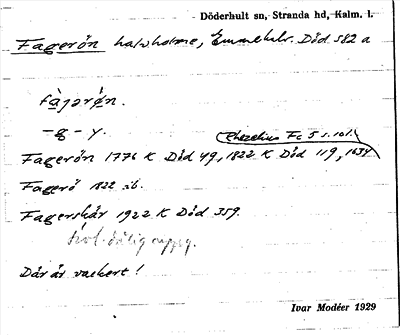 Döderhult sn, Stranda hd, Kalm. l.
Fagerön halvholme, Emmekalv. Död 582 a
fàjerø̀n.
-g-y.
Rhezelius Fc 5 s. 101. 1634
Fagerön 1776 K Död 49, 1822 K Död 119,
Fagerö 1822 ib.
Fagerskär 1922 K Död 359.
dålig uppg.
Där är vackert!
Ivar Modéer 1929